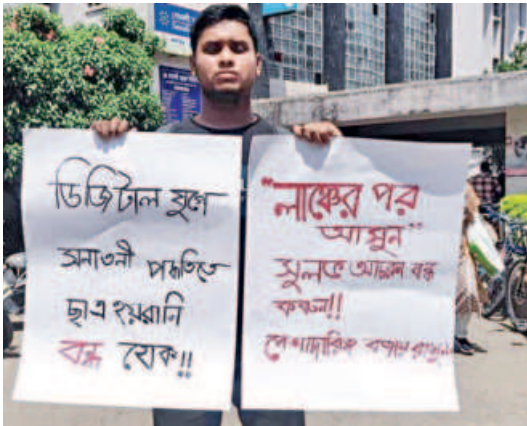 ডিজিটাল যুগে
সনাতনী পদ্ধতিতে
ছাত্র হয়রানি
বন্ধ হোক!!
"লাঞ্চের পর
আসুন"
সুলভ আচরণ বন্ধ
করুন!!
পেশাদারিত্ব বজায় রাখুন